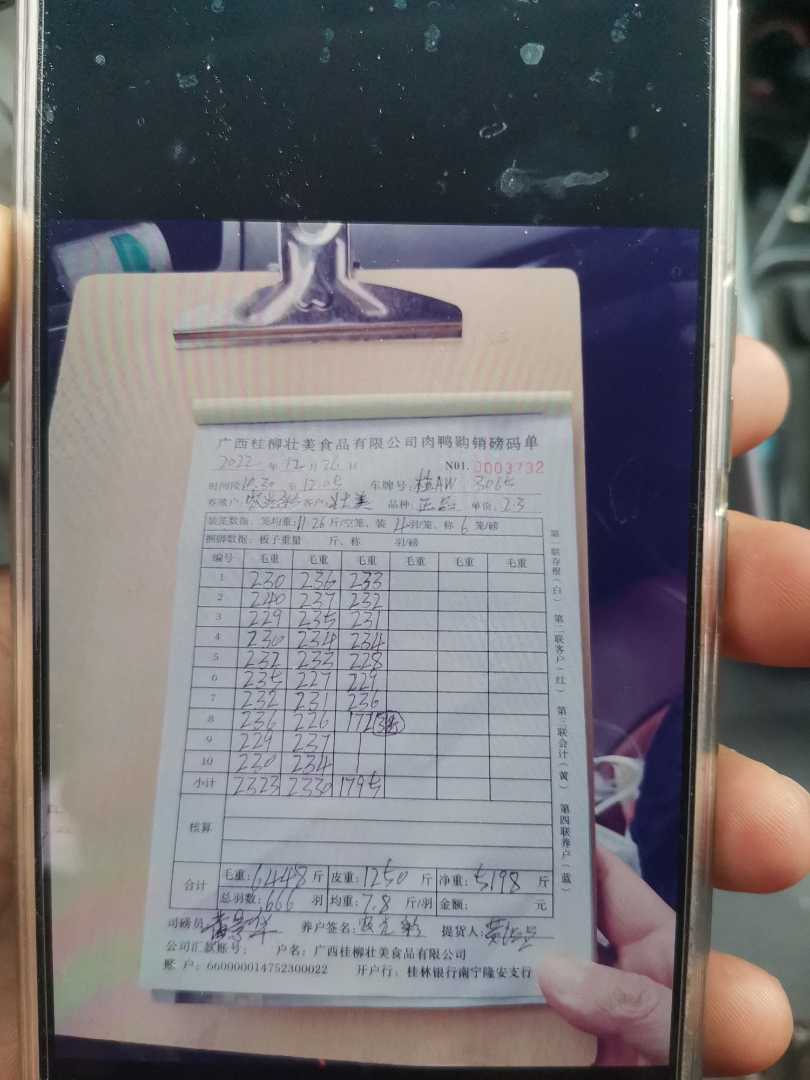 广西桂柳壮美食品有限公司肉鸭购销磅码单
2022年12月26日 N01. 0003732
时间段 至12.05 车牌号:桂AW
养殖户: 客户:壮美 品种:正品 单价:2.3
装笼数据: 笼均重: 26斤/空笼、装4羽/笼、称6笼/磅
捆脚数据: 板子重量 斤、称 羽/磅
编号 毛重 毛重 毛重 毛重 毛重 毛重
1 230 236 233
2 240 237 232
3 229 235 231
4 230 234 234
5 232 233 228
6 235 227 229
7 232 231 236
8 236 226 172
9 229 237
10 230 234
小计 2323 2330 1795
核算
合计 毛重:6448斤 皮重:1250斤 净重:5198斤
总羽数:666羽 均重:7.8斤/羽 金额: 元
司磅员 养户签名: 提货人:
公司汇款账号: 户名:广西桂柳壮美食品有限公司
账户:660000014752300022 开户行:桂林银行南宁隆安支行
第一联存根(白) 第二联客户(红) 第三联会计(黄) 第四联养户(蓝)